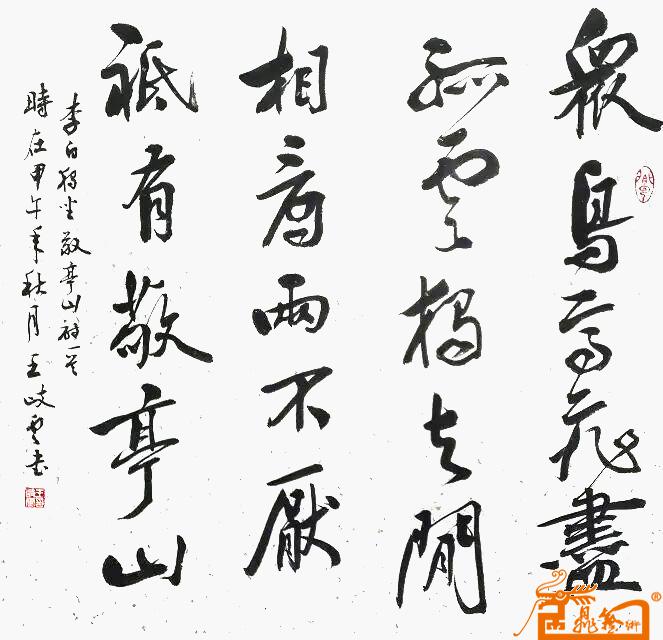 眾鳥高飛盡
孤雲獨去閒
相看兩不厭
祗有敬亭山
李白獨坐敬亭山詩一首
時在甲午年秋月王岐雲書